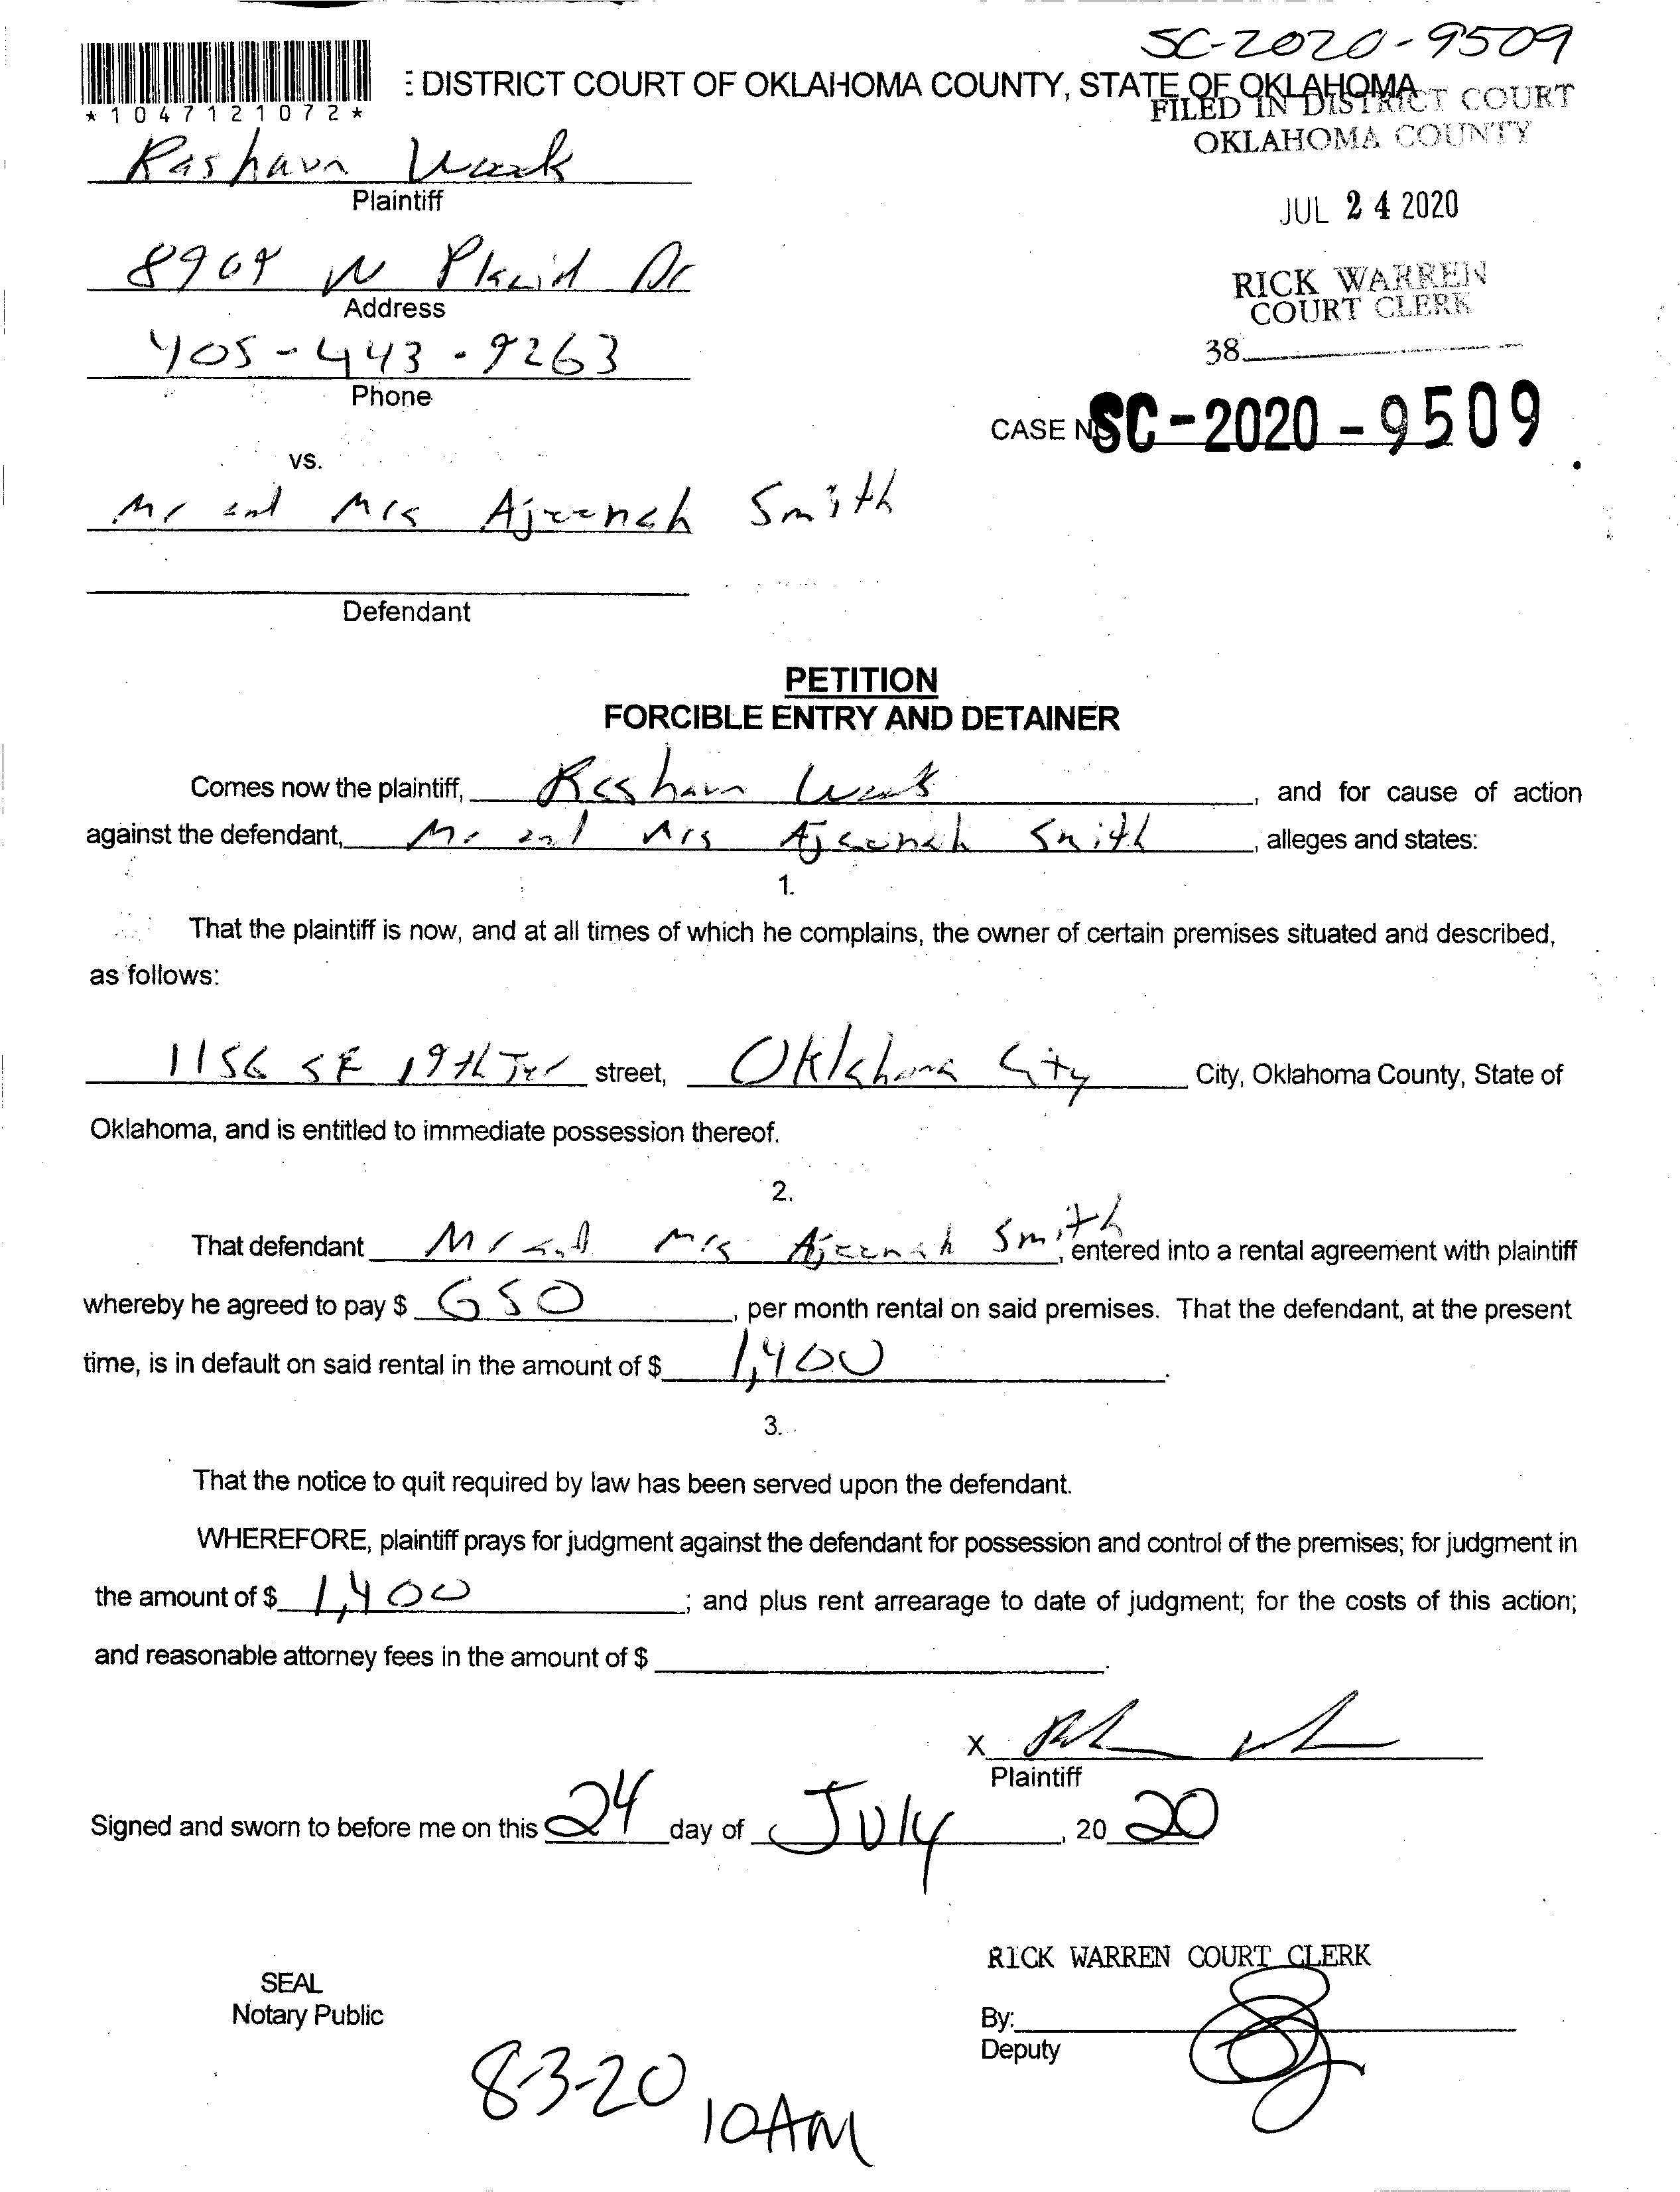 SC-2020-9509
: DISTRICT COURT OF OKLAHOMA COUNTY, STATE OF OKLAHOMA
*1047121072*
FILED IN DISTRICT COURT
OKLAHOMA COUNTY
Rashaun
Plaintiff
JUL 24 2020
8909 N Placid Dr
Address
RICK WARREN
COURT CLERK
405-443-9263
38
Phone
CASE NO SC-2020-9509
vs.
Mr and Mrs Smith
Defendant
PETITION
FORCIBLE ENTRY AND DETAINER
Comes now the plaintiff, Rashaun , and for cause of action
against the defendant, Mr and Mrs Smith , alleges and states:
1.
That the plaintiff is now, and at all times of which he complains, the owner of certain premises situated and described,
as follows:
1156 SE 19th Ter street, Oklahoma City City, Oklahoma County, State of
Oklahoma, and is entitled to immediate possession thereof.
2.
That defendant Mr and Mrs Smith, entered into a rental agreement with plaintiff
whereby he agreed to pay $ 650 , per month rental on said premises. That the defendant, at the present
time, is in default on said rental in the amount of $ 1,400 .
3.
That the notice to quit required by law has been served upon the defendant.
WHEREFORE, plaintiff prays for judgment against the defendant for possession and control of the premises; for judgment in
the amount of $ 1,400 ; and plus rent arrearage to date of judgment; for the costs of this action;
and reasonable attorney fees in the amount of $ .
X
Plaintiff
Signed and sworn to before me on this 24 day of July , 20 20
RICK WARREN COURT CLERK
SEAL
Notary Public
By:
Deputy
8-3-20 10AM